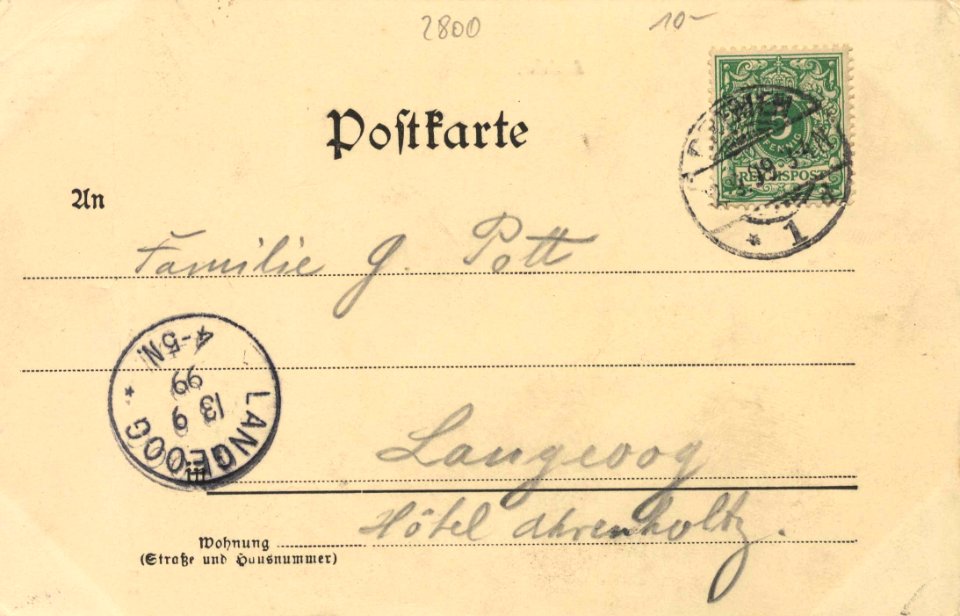 2800 10-
Postkarte
5
PFENNIG
REICHSPOST
1
An
Familie G. Pott
LANGEOOG
13 9
99
4-5N.
in Langeoog
Wohnung Hôtel Ahrenholtz.
(Straße und Hausnummer)